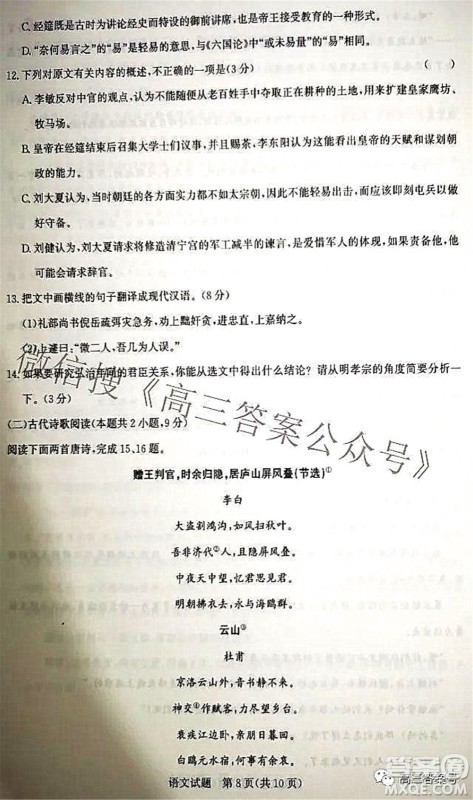 C. 经筵既是古时为讲论经史而特设的御前讲席,也是帝王接受教育的一种形式。
D. “奈何易言之”的“易”是轻易的意思,与《六国论》中“或未易量”的“易”相同。
12. 下列对原文有关内容的概述,不正确的一项是(3分) ( )
A. 李敏反对中官的观点,认为不能随便从老百姓手中夺取正在耕种的土地,用来扩建皇家鹰坊、
牧马场。
B. 皇帝在经筵结束后召集大学士们议事,并且赐茶,李东阳认为这能看出皇帝的天赋和谋划朝
政的能力。
C. 刘大夏认为,当时朝廷的各方面实力都不如太宗朝,因此不能轻易出击,而应该即刻屯兵以做
好守备。
D. 刘健认为,刘大夏请求将修造清宁宫的军工减半的谏言,是爱惜军人的体现,如果责备他,他
可能会请求辞官。
13. 把文中画横线的句子翻译成现代汉语。(8分)
(1)礼部尚书倪岳疏弭灾急务,劝上黜奸贪,进忠直,上嘉纳之。
(2)上遽曰:“微二人,吾几为人误。”
14. 如果要研究弘治年间的君臣关系,你能从选文中得出什么结论?请从明孝宗的角度简要分析一
下。(3分)
(二)古代诗歌阅读(本题共2小题,9分)
阅读下面两首唐诗,完成15、16题。
赠王判官,时余归隐,居庐山屏风叠(节选)①
李白
大盗割鸿沟,如风扫秋叶。
吾非济代②人,且隐屏风叠。
中夜天中望,忆君思见君。
明朝拂衣去,永与海鸥群。
云山③
杜甫
京洛云山外,音书静不来。
神交④作赋客,力尽望乡台。
衰疾江边卧,亲朋日暮回。
白鸥元水宿,何事有余哀。
语文试题 第8页(共10页)
微信搜《高三答案公众号》
高三答案号